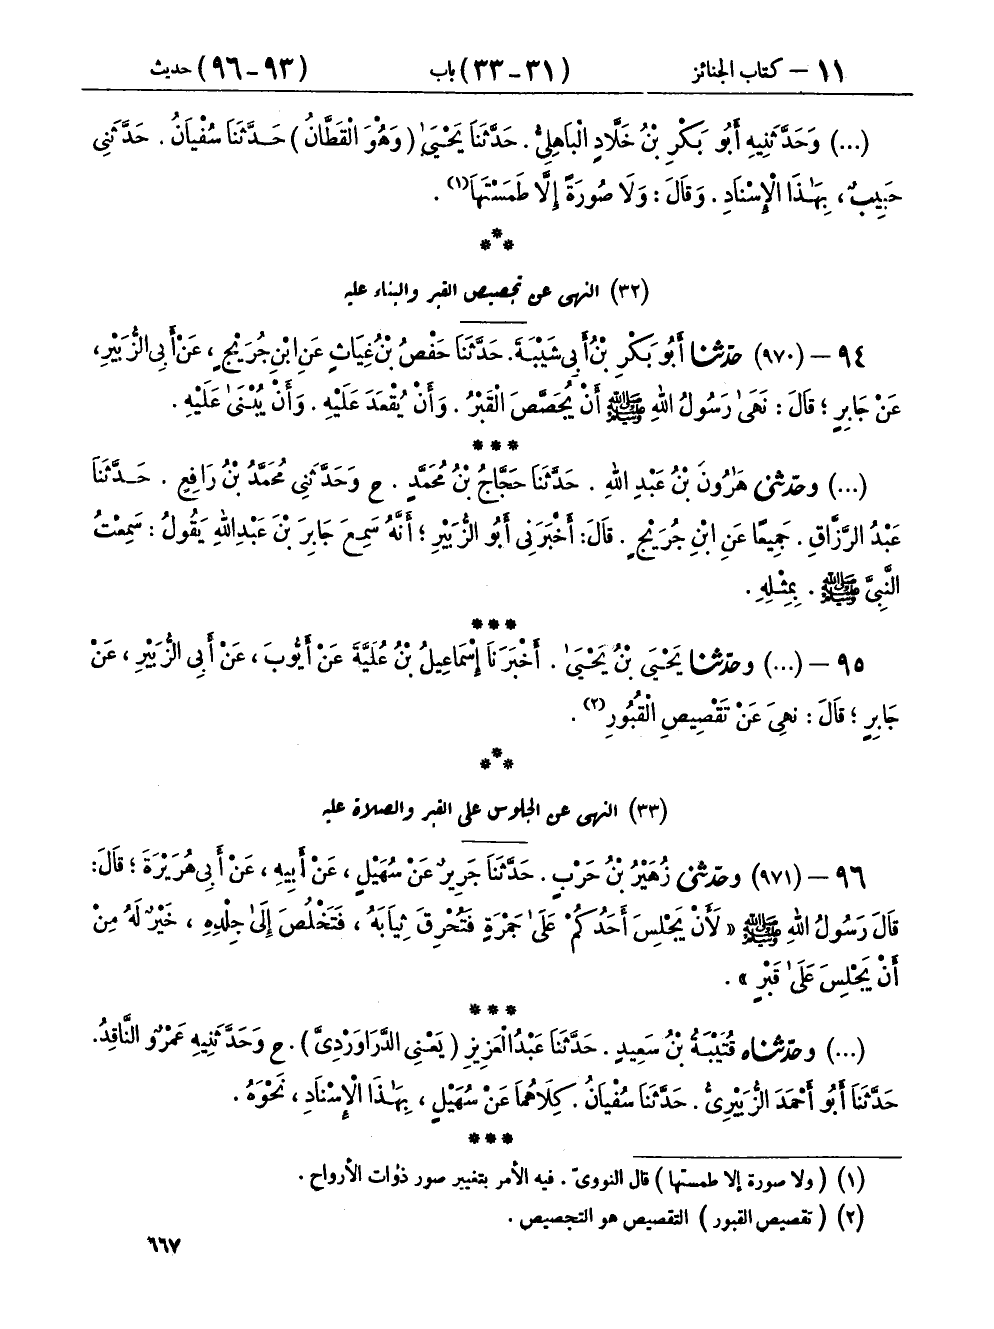 ١١ – كتاب الجنائز (٣١-٣٣) باب (٩٣-٩٦) حديث
(...) وَحَدَّثَنِيهِ أَبُو بَكْرِ بْنُ خَلَّادٍ الْبَاهِلِيُّ . حَدَّثَنَا يَحْيَىٰ (وَهُوَ الْقَطَّانُ) حَدَّثَنَا سُفْيَانُ . حَدَّثَنِي
حَبِيبٌ ، بِهَٰذَا الْإِسْنَادِ . وَقَالَ : وَلَا صُورَةً إِلَّا طَمَسْتَهَا(١) .
***
(٣٢) النهى عن تجصيص القبر والبناء عليه
٩٤ – (٩٧٠) حدّثنا أَبُو بَكْرِ بْنُ أَبِي شَيْبَةَ . حَدَّثَنَا حَفْصُ بْنُ غِيَاثٍ عَنِ ابْنِ جُرَيْجٍ ، عَنْ أَبِي الزُّبَيْرِ ،
عَنْ جَابِرٍ ؛ قَالَ : نَهَىٰ رَسُولُ اللهِ ﷺ أَنْ يُجَصَّصَ الْقَبْرُ . وَأَنْ يُقْعَدَ عَلَيْهِ . وَأَنْ يُبْنَىٰ عَلَيْهِ .
***
(...) وحدّثنى هَٰرُونُ بْنُ عَبْدِ اللهِ . حَدَّثَنَا حَجَّاجُ بْنُ مُحَمَّدٍ . ح وَحَدَّثَنِي مُحَمَّدُ بْنُ رَافِعٍ . حَدَّثَنَا
عَبْدُ الرَّزَّاقِ . جَمِيعًا عَنِ ابْنِ جُرَيْجٍ . قَالَ : أَخْبَرَنِي أَبُو الزُّبَيْرِ ؛ أَنَّهُ سَمِعَ جَابِرَ بْنَ عَبْدِ اللهِ يَقُولُ : سَمِعْتُ
النَّبِيَّ ﷺ . بِمِثْلِهِ .
***
٩٥ – (...) وحدّثنا يَحْيَى بْنُ يَحْيَىٰ . أَخْبَرَنَا إِسْمَاعِيلُ بْنُ عُلَيَّةَ عَنْ أَيُّوبَ ، عَنْ أَبِي الزُّبَيْرِ ، عَنْ
جَابِرٍ ؛ قَالَ : نهِىَ عَنْ تَقْصِيصِ الْقُبُورِ(٢) .
***
(٣٣) النهى عن الجلوس على القبر والصلاة عليه
٩٦ – (٩٧١) وحدّثنى زُهَيْرُ بْنُ حَرْبٍ . حَدَّثَنَا جَرِيرٌ عَنْ سُهَيْلٍ ، عَنْ أَبِيهِ ، عَنْ أَبِي هُرَيْرَةَ ؛ قَالَ :
قَالَ رَسُولُ اللهِ ﷺ « لَأَنْ يَجْلِسَ أَحَدُكُمْ عَلَىٰ جَمْرَةٍ فَتُحْرِقَ ثِيَابَهُ ، فَتَخْلُصَ إِلَىٰ جِلْدِهِ ، خَيْرٌ لَهُ مِنْ
أَنْ يَجْلِسَ عَلَىٰ قَبْرٍ » .
***
(...) وحدّثناه قُتَيْبَةُ بْنُ سَعِيدٍ . حَدَّثَنَا عَبْدُ الْعَزِيزِ (يَعْنِي الدَّرَاوَرْدِيَّ) . ح وَحَدَّثَنِيهِ عَمْرٌو النَّاقِدُ .
حَدَّثَنَا أَبُو أَحْمَدَ الزُّبَيْرِيُّ . حَدَّثَنَا سُفْيَانُ . كِلَاهُمَا عَنْ سُهَيْلٍ ، بِهَٰذَا الْإِسْنَادِ ، نَحْوَهُ .
***
(١) (ولا صورة إلا طمستها) قال النووىّ . فيه الأمر بتغيير صور ذوات الأرواح .
(٢) (تقصيص القبور) التقصيص هو التجصيص .
٦٦٧